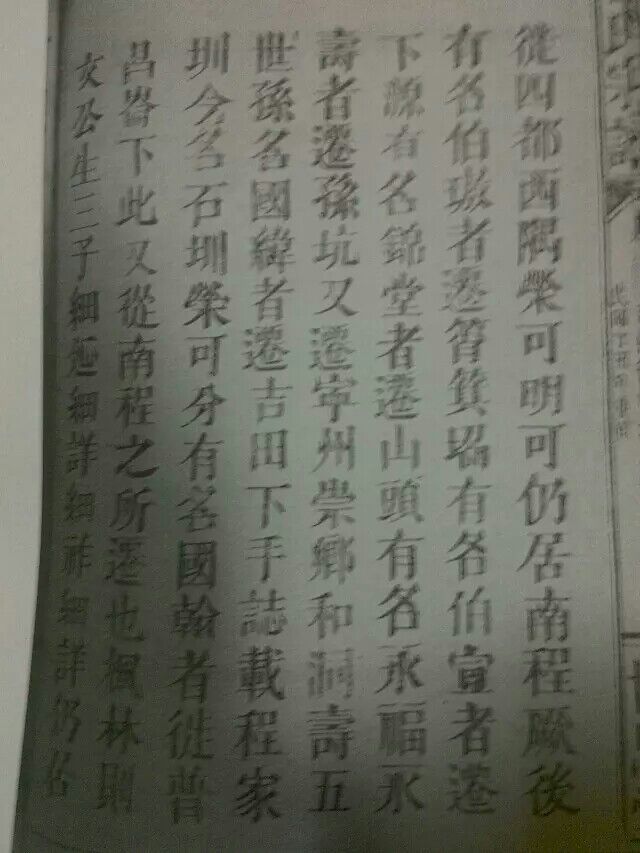 從四都西隅榮可明可仍居南程厥後
有名伯璈者遷筲箕㘭有名伯宣者遷
下源有名錦堂者遷山頭有名永福永
壽者遷孫坑又遷寧州崇鄉和洞壽五
世孫名國緯者遷吉田下手誌載程家
圳今名石圳榮可分有名國翰者徙普
昌畬下此又從南程之所遷也楓林則
文公生三子細極細詳細祥細詳仍居